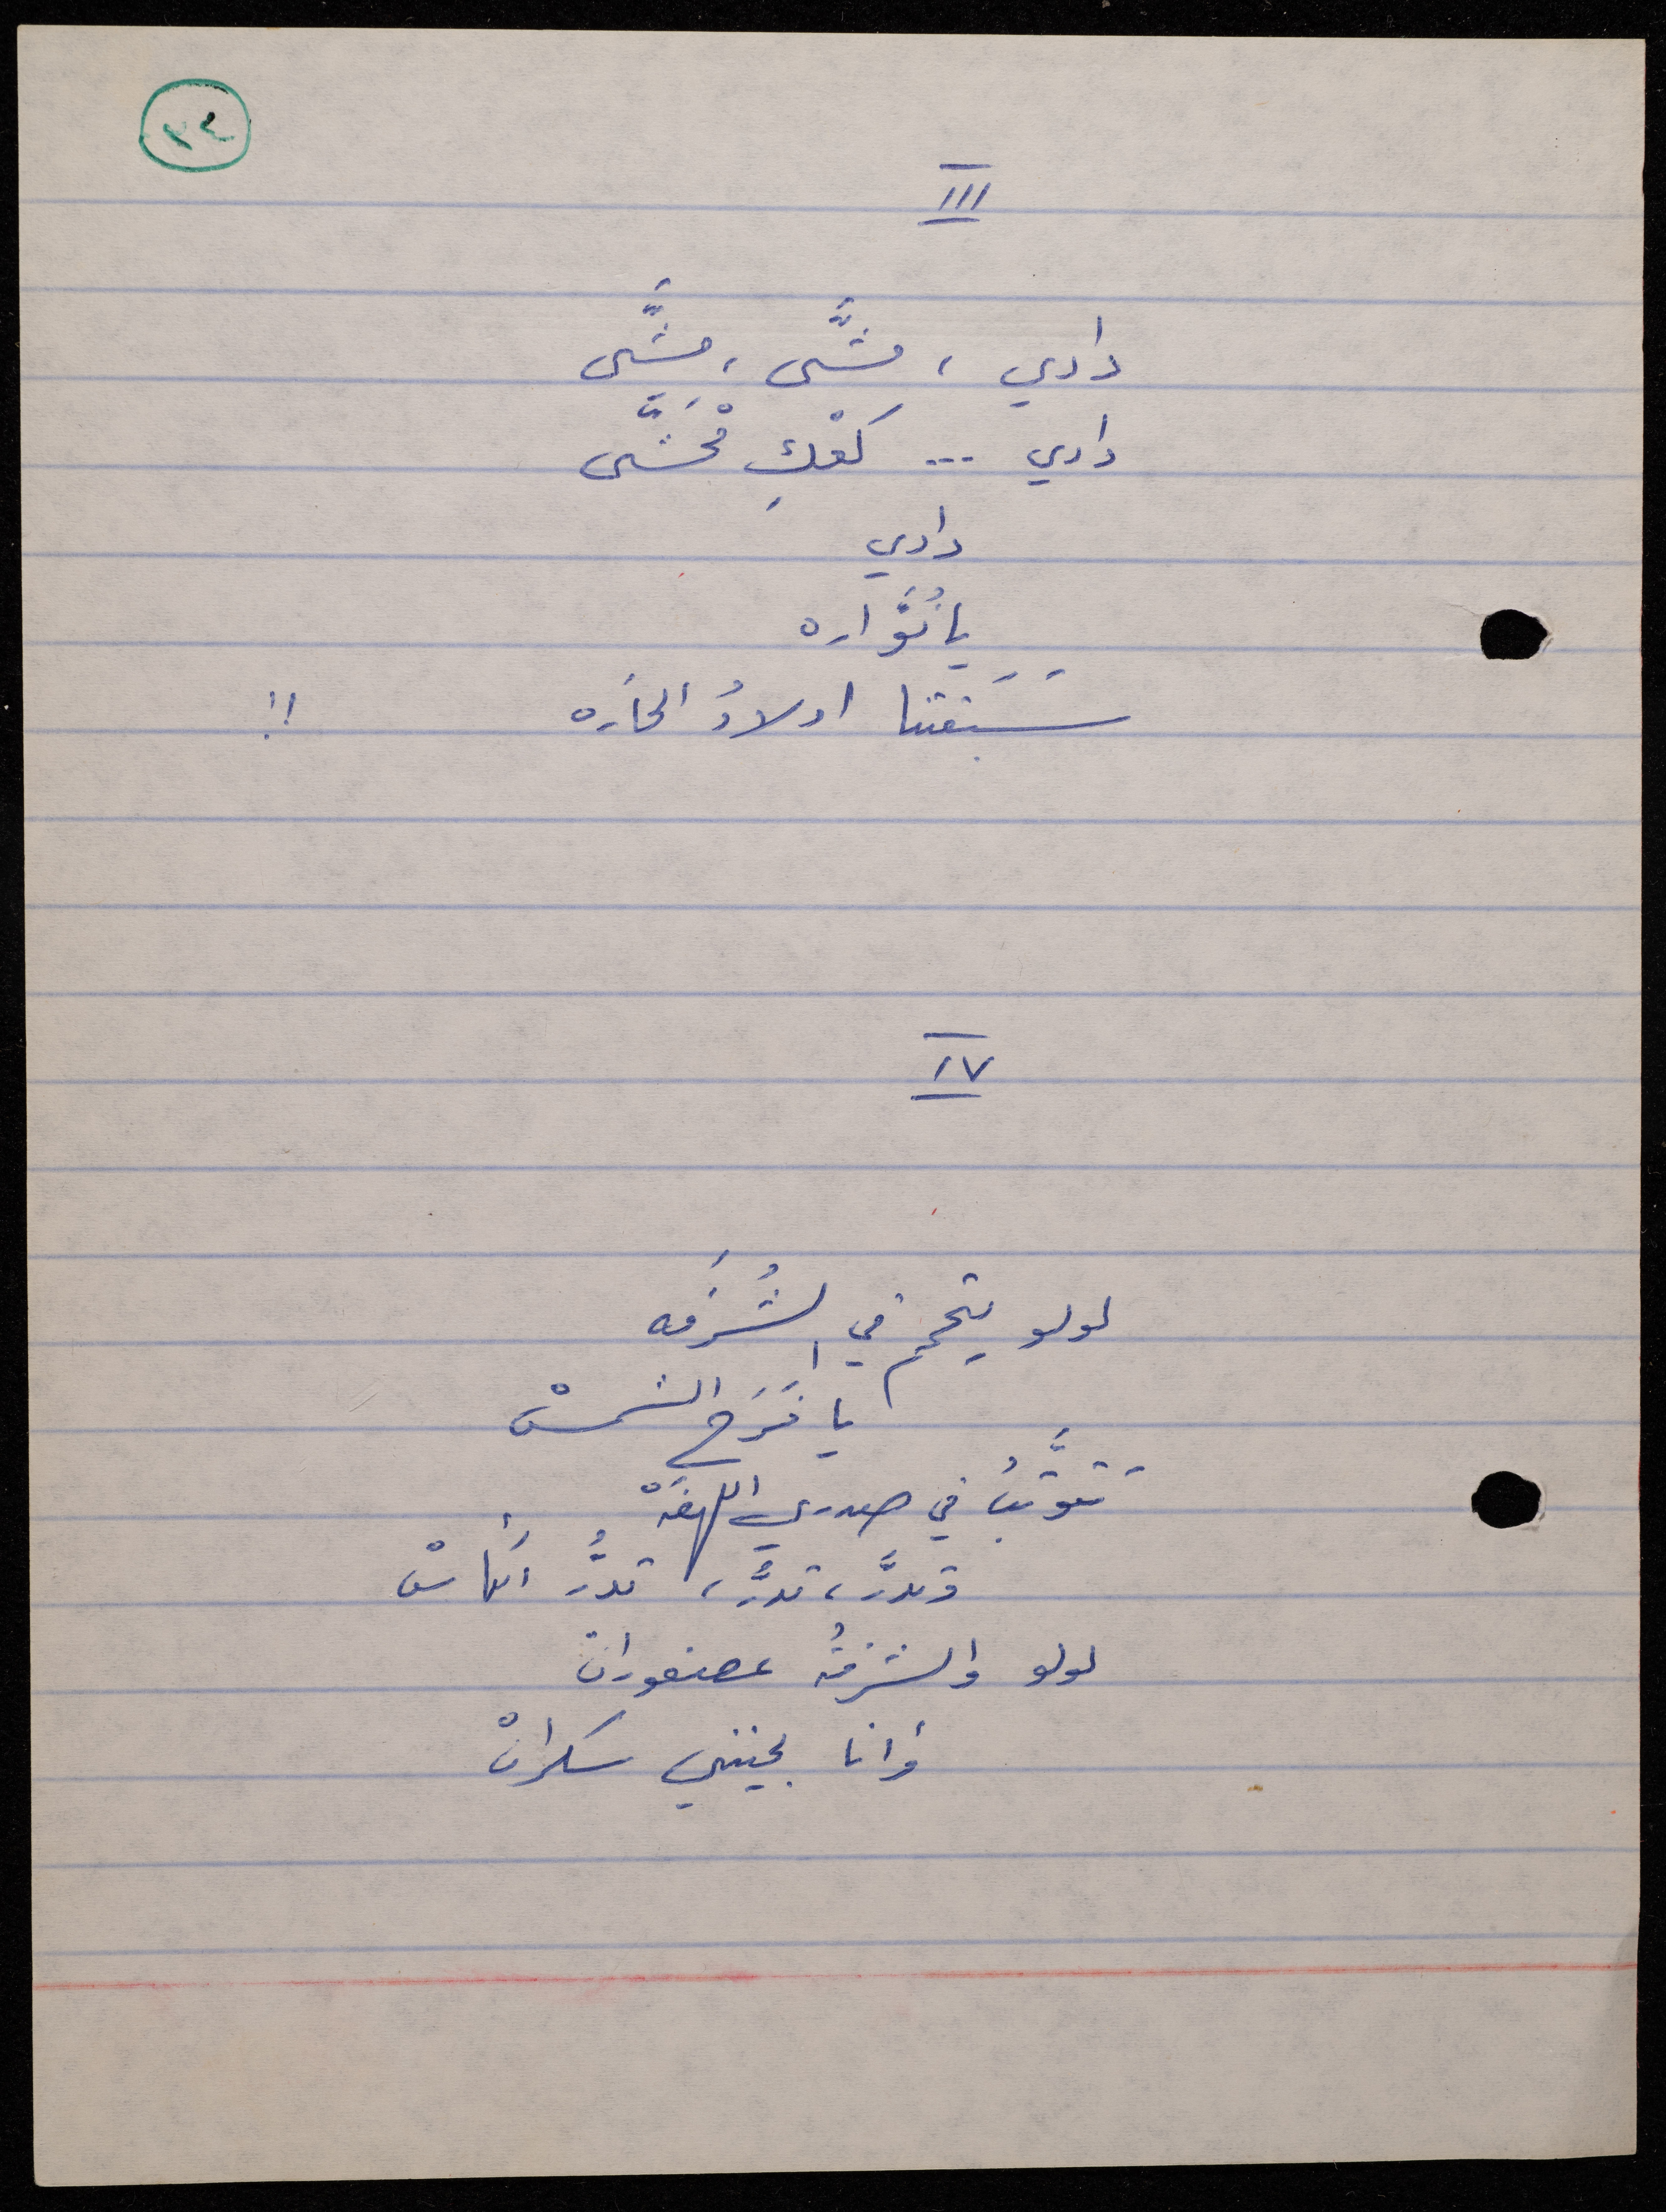 ٣٤
III
دادي ، مَشَّى ، مَشَّى
دادي ... كعْكِ مْحَشَّى
دادي
يا نُوَّاره
سَبَقتنا اولادُ الحَاره !!
IV
لولو يتحمم في الشُرَفه
يا فَرَح الشمسْ
تَتَوثَّبُ في صدري اللهفَهْ
وتدرَّ ، تدرَّ ، تدرُّ الكأسْ
لولو والشرفةُ عصفوران
وَانا بجنني سكرانْ